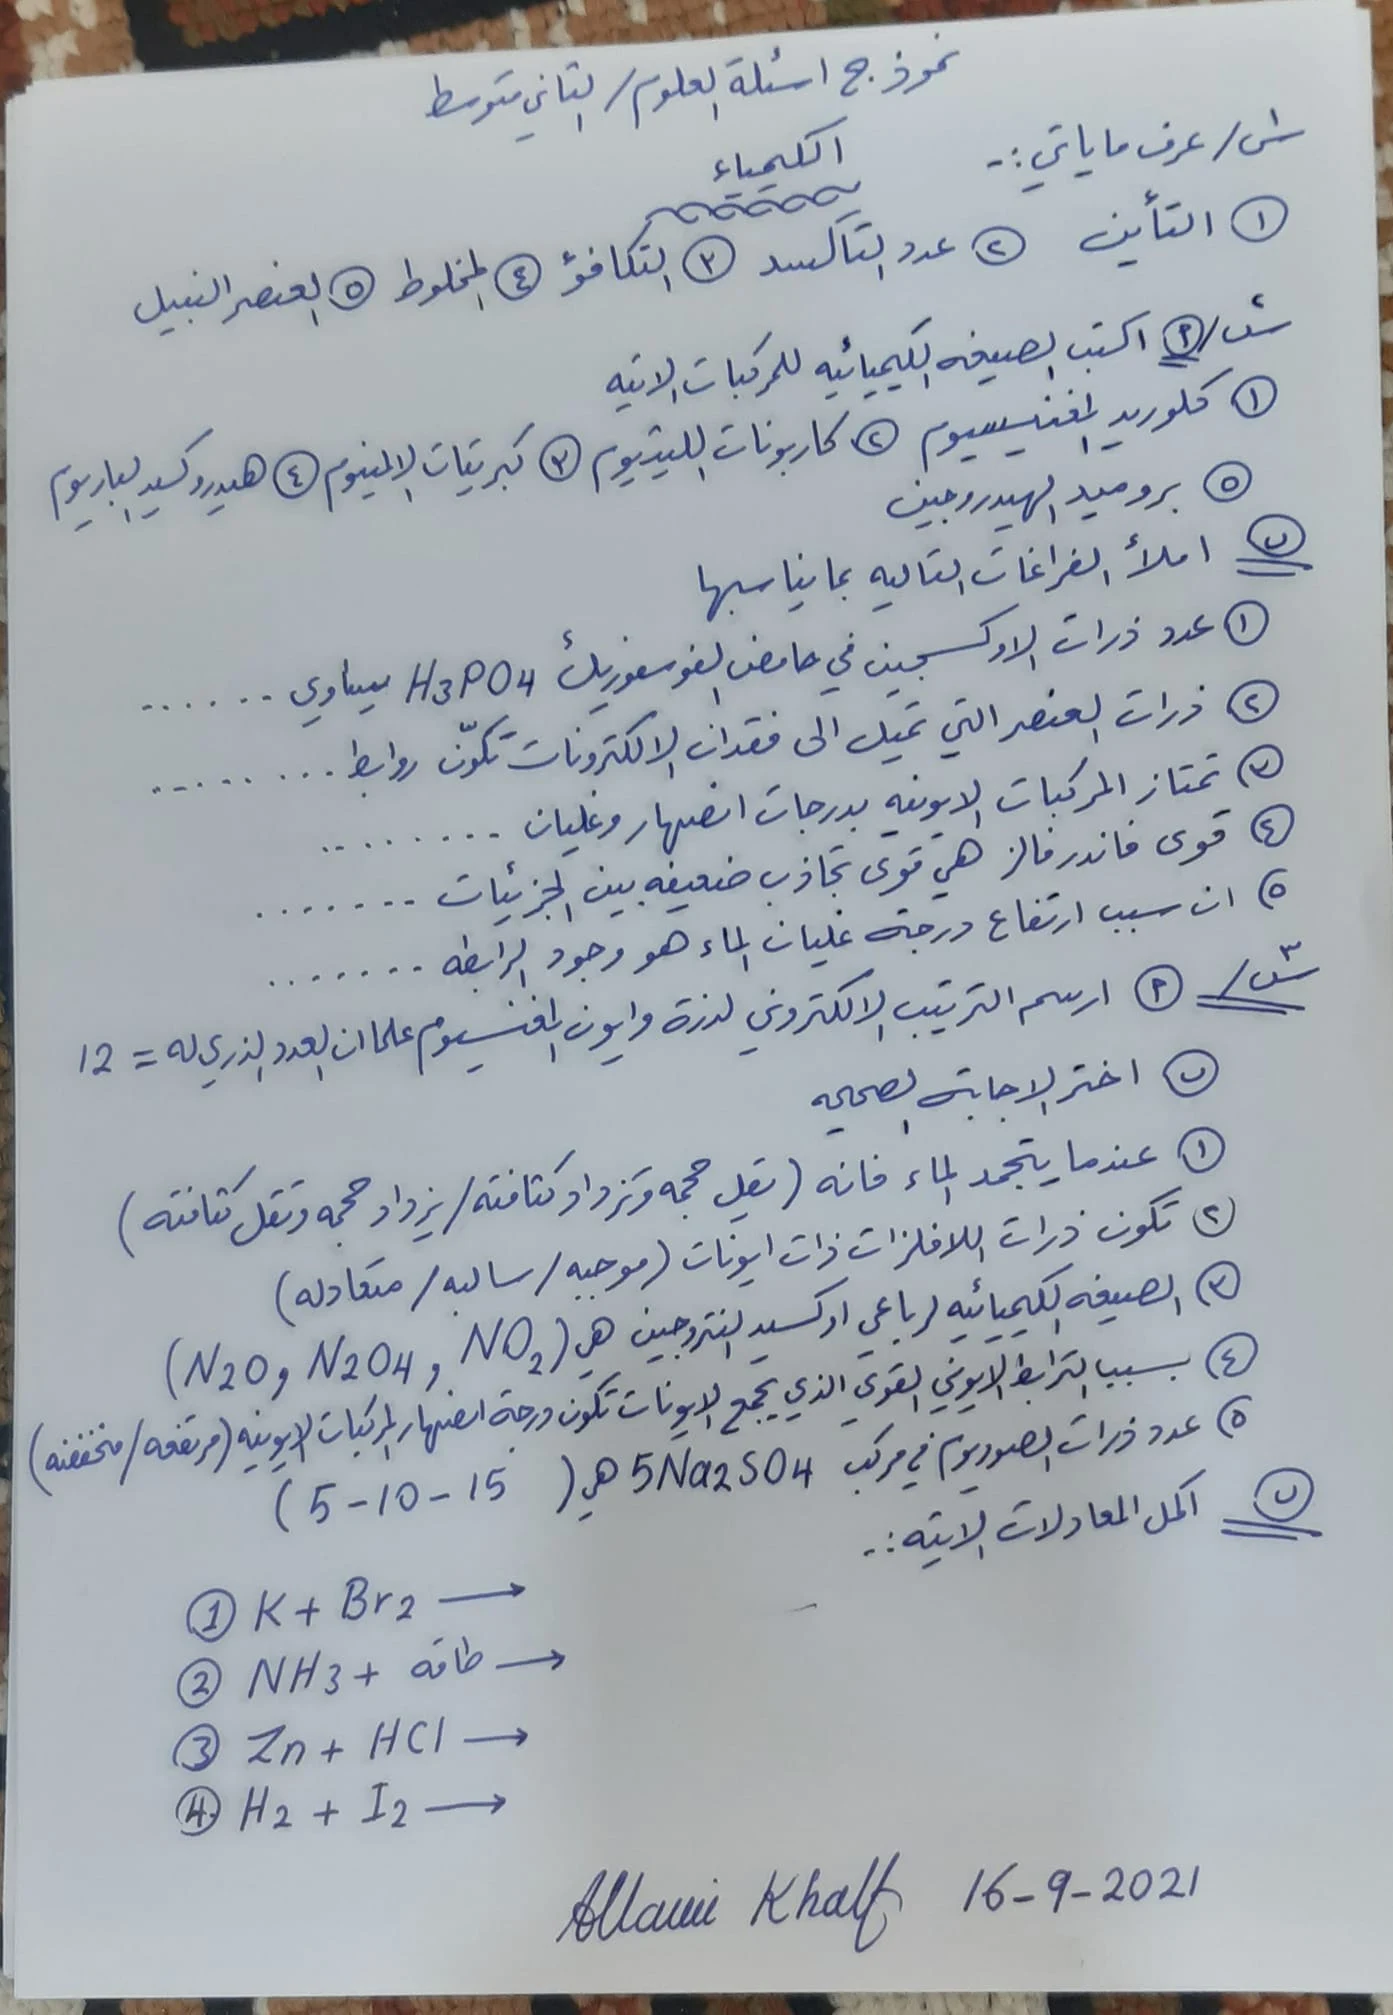 نموذج اسئلة العلوم / الثاني متوسط
الكيمياء
س١/ عرف ما ياتي :-
① التأين ② عدد التأكسد ③ التكافؤ ④ المخلوط ⑤ العنصر النبيل
س٢/ أ اكتب الصيغه الكيميائيه للمركبات الاتيه
① كلوريد المغنيسيوم ② كاربونات الليثيوم ③ كبريتات الالمنيوم ④ هيدروكسيد الباريوم
⑤ بروميد الهيدروجين
ب املأ الفراغات التاليه بما يناسبها
① عدد ذرات الاوكسجين في حامض الفوسفوريك H3PO4 يساوي .......
② ذرات العنصر التي تميل الى فقدان الالكترونات تكوّن روابط .........
③ تمتاز المركبات الايونيه بدرجات انصهار وغليان ........
④ قوى فاندرفالز هي قوى تجاذب ضعيفه بين الجزيئات .......
⑤ ان سبب ارتفاع درجة غليان الماء هو وجود الرابطه .......
س٣/ أ ارسم الترتيب الالكتروني لذرة وايون المغنسيوم علما ان العدد الذري له = 12
ب اختر الاجابة الصحيحه
① عندما يتجمد الماء فانه (يقل حجمه وتزداد كثافته / يزداد حجمه وتقل كثافته)
② تكون ذرات اللافلزات ذات ايونات (موجبه / سالبه / متعادله)
③ الصيغه الكيميائيه لرباعي اوكسيد النتروجين هي (NO2 , N2O4 , N2O)
④ بسبب الترابط الايوني القوي الذي يجمع الايونات تكون درجة انصهار المركبات الايونيه (مرتفعه / منخفضه)
⑤ عدد ذرات الصوديوم في مركب 5Na2SO4 هي (5-10-15)
ب اكمل المعادلات الاتيه :-
① K + Br2 →
② NH3 + طاقه →
③ Zn + HCl →
④ H2 + I2 →
Khalf 16-9-2021